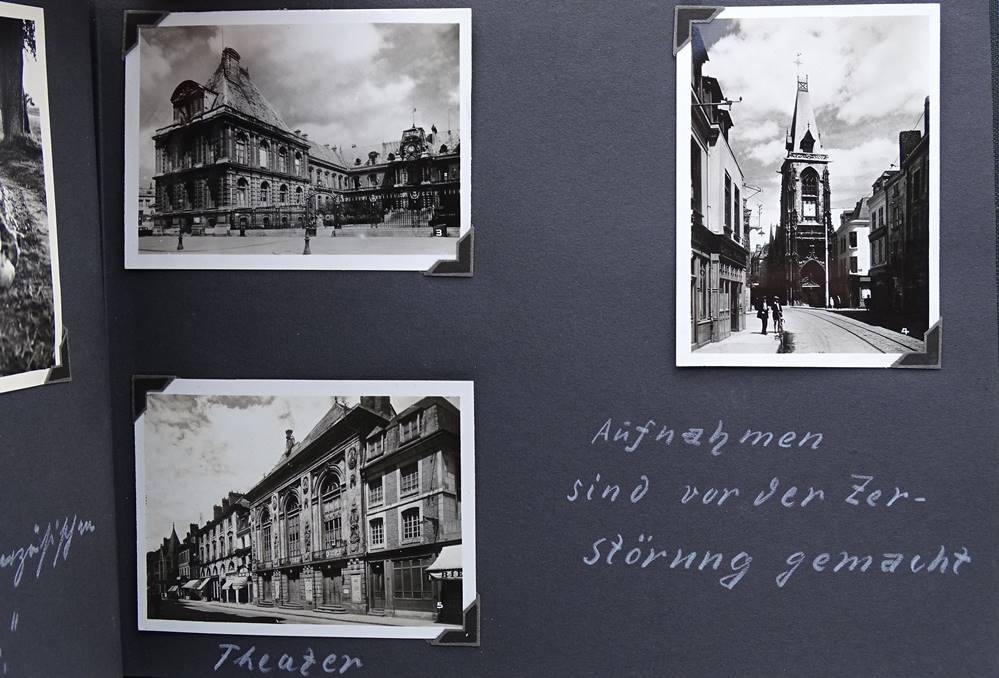 3
4
5
Theater
Aufnahmen
sind vor der Zer-
störung gemacht
"